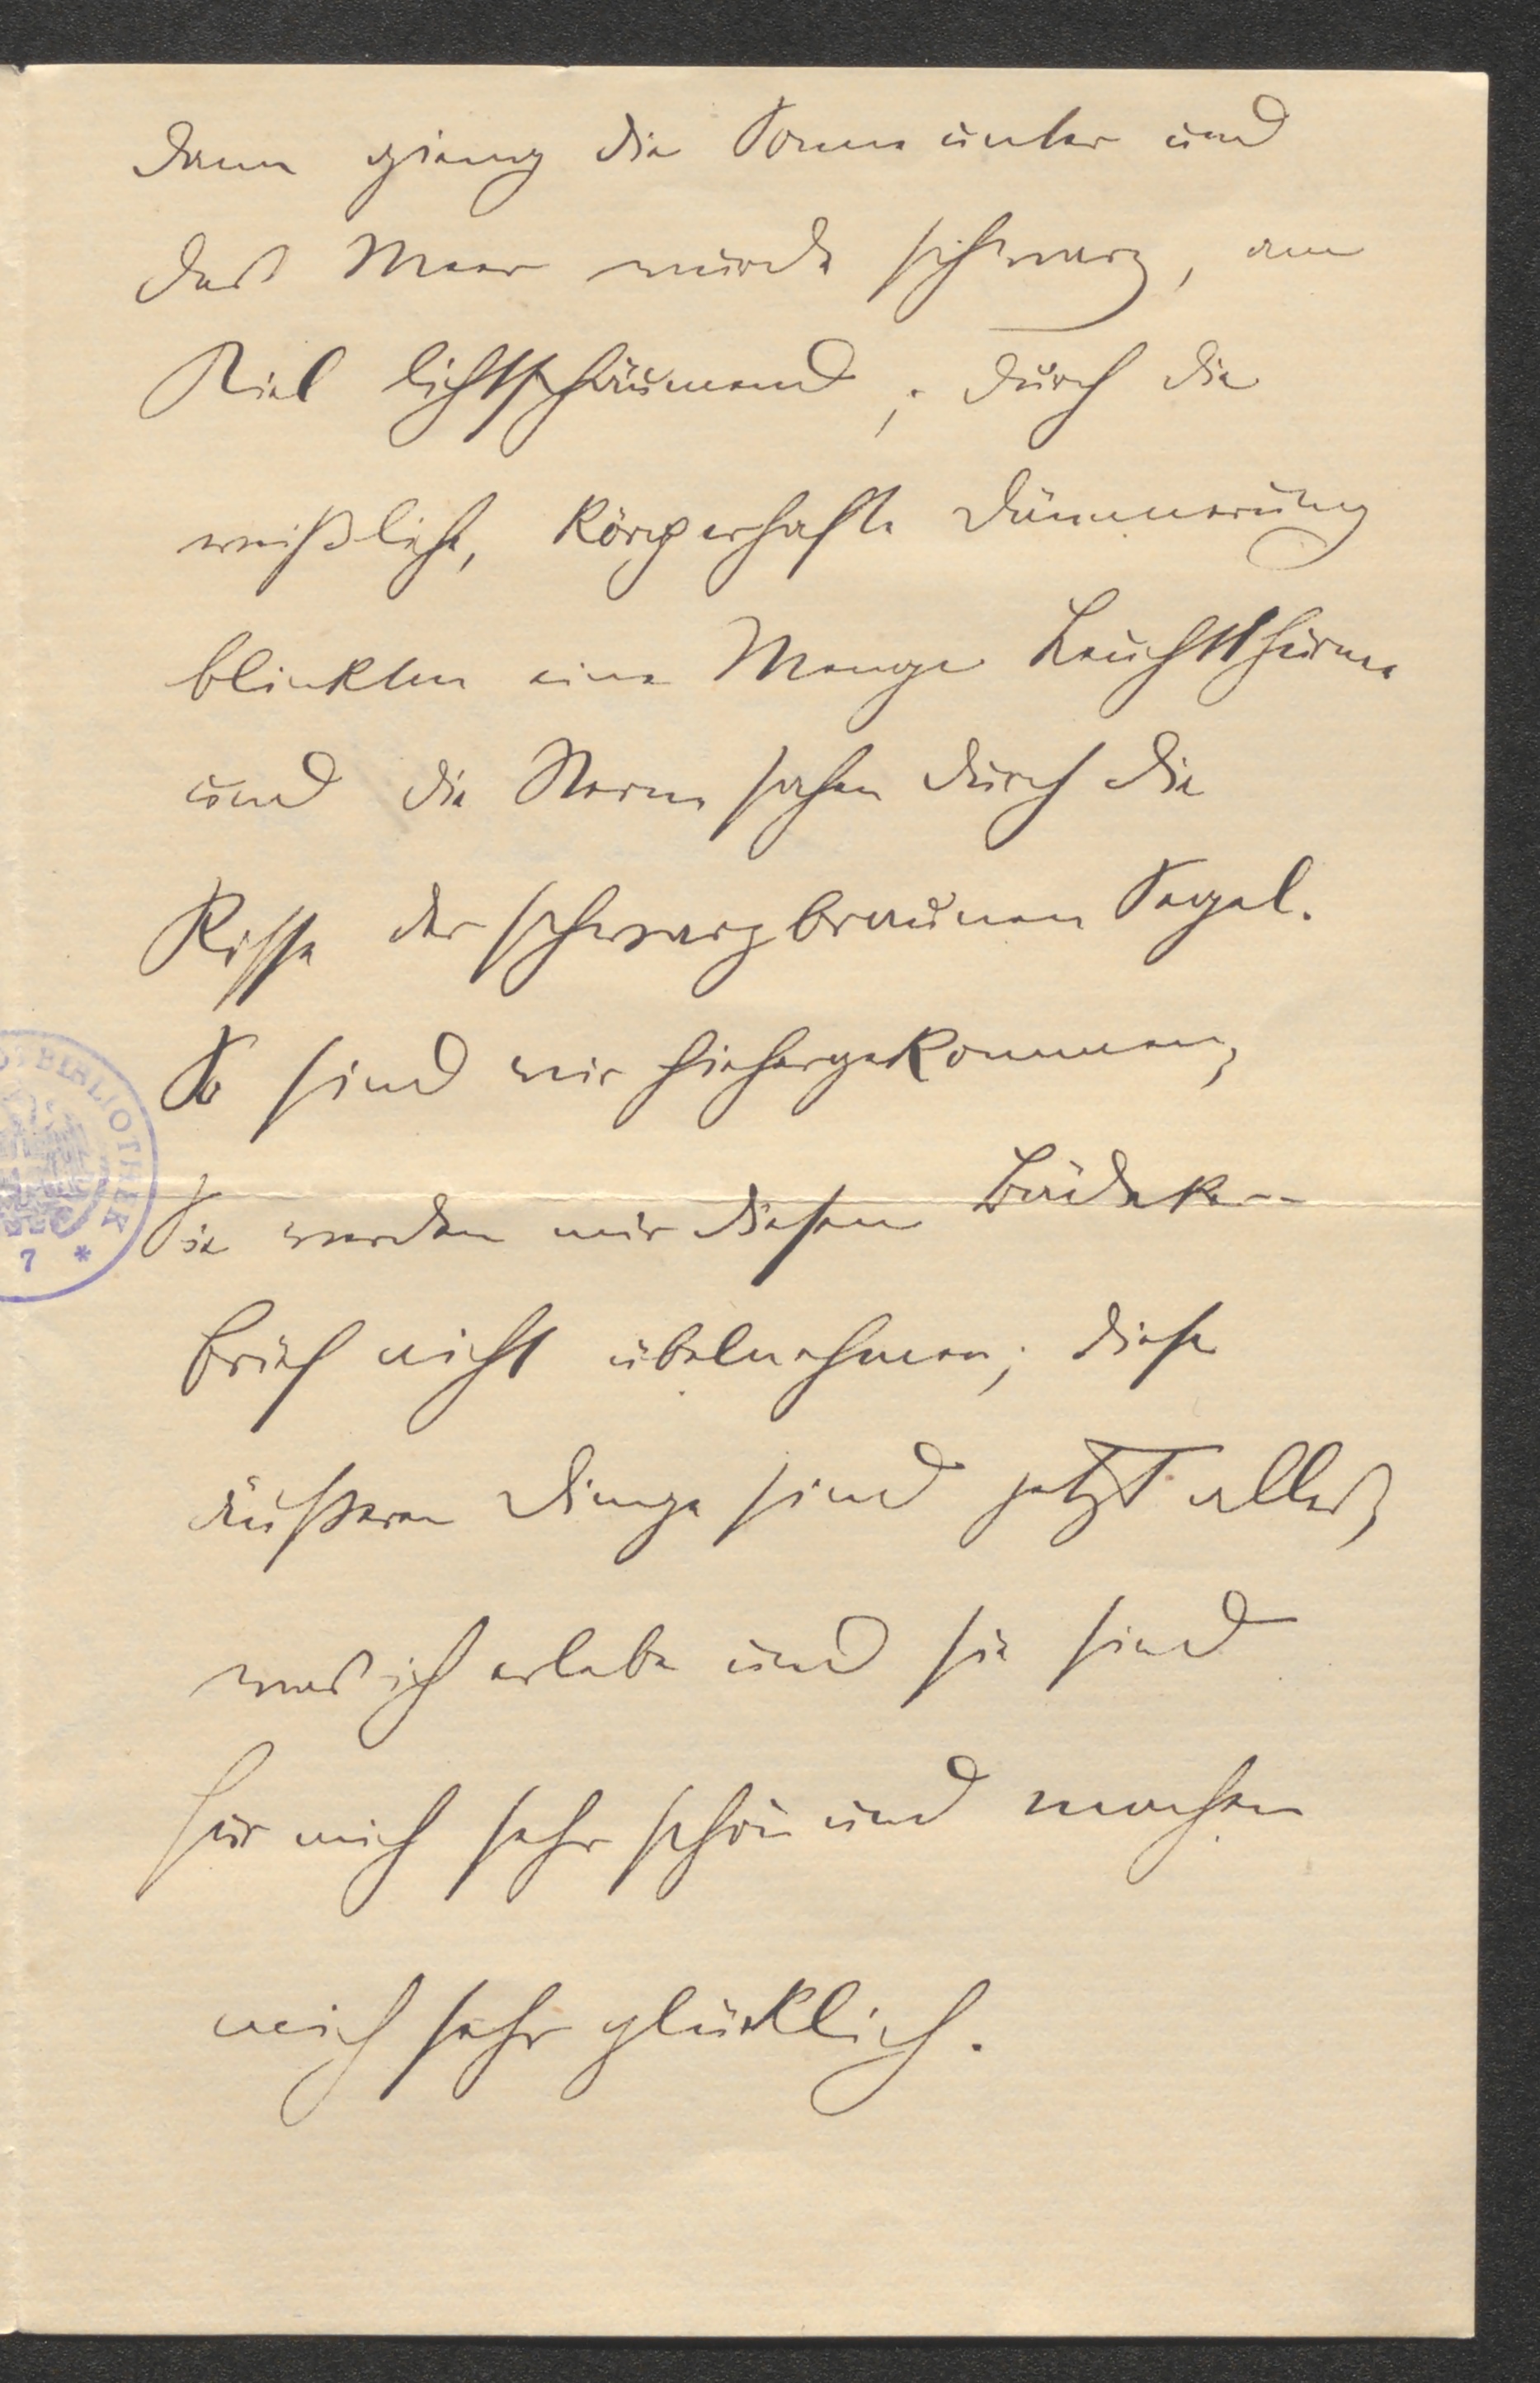 dann gieng die Sonne unter und
das Meer wurde schwarz, am
Kiel lichtschäumend; durch die
weißliche, körperhafte Dämmerung
blinkten eine Menge Leuchtthürme
und die Sterne sahen durch die
Risse der schwarzbraunen Segel.
So sind wir hiehergekommen,
Sie werden mir diesen Bädeker-
brief nicht übelnehmen; diese
äußeren Dinge sind jetzt alles,
was ich erlebe und sie sind
für mich sehr schön und machen
mich sehr glücklich.
BIBLIOTHEK
7 *